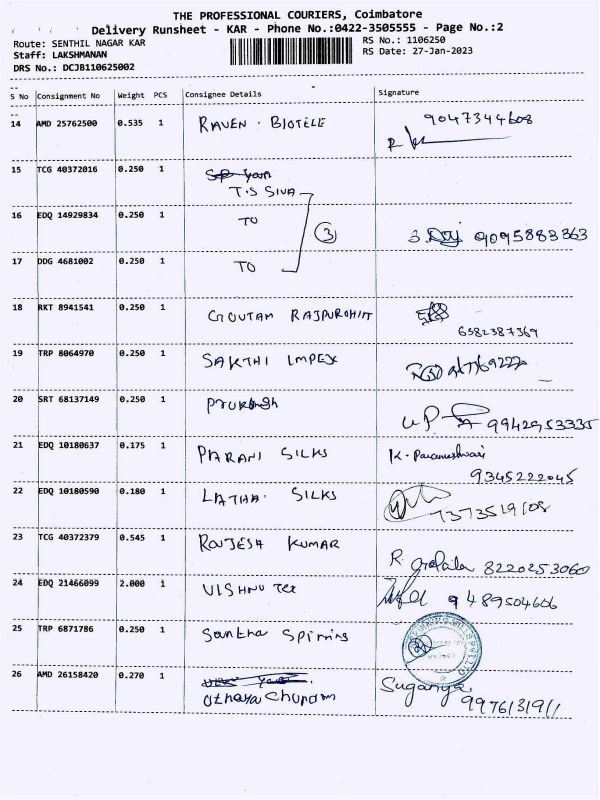 THE PROFESSIONAL COURIERS, Coimbatore
Delivery Runsheet - KAR - Phone No.:0422-3505555 - Page No.:2
Route: SENTHIL NAGAR KAR RS No.: 1106250
Staff: LAKSHMANAN RS Date: 27-Jan-2023
DRS No.: DCJB110625002
S No Consignment No Weight PCS Consignee Details Signature
14 AMD 25762500 0.535 1 RAVEN . BIOTELE 9047344608
15 TCG 40372016 0.250 1
T.S SIVA
16 EDQ 14929834 0.250 1 TO 3 9095883363
17 DDG 4681002 0.250 1 TO
18 RKT 8941541 0.250 1 GOUTAM RAJPUROHIT
6382387369
19 TRP 8064970 0.250 1 SAKTHI IMPEX
20 SRT 68137149 0.250 1 Prakash
9942953335
21 EDQ 10180637 0.175 1 PARANI SILKS K. Parameshwari
9345222045
22 EDQ 10180590 0.180 1 LATHA. SILKS
7373519108
23 TCG 40372379 0.545 1 RAJESH KUMAR
R 8220253060
24 EDQ 21466099 2.000 1 VISHNU Tex 9489504606
25 TRP 6871786 0.250 1 Santha Spinins
26 AMD 26158420 0.270 1 Suganya.
Uthaya Churam 9976131911